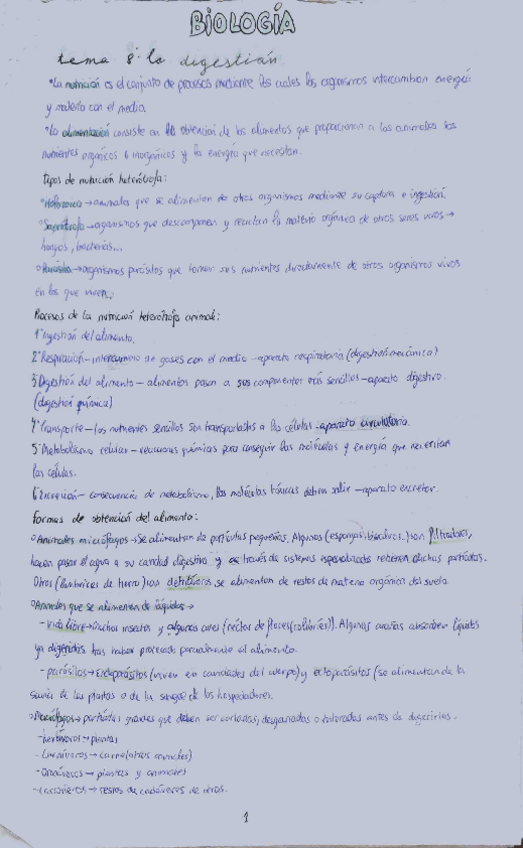 BIOLOGÍA
tema 8: la digestión
*La nutrición es el conjunto de procesos mediante los cuales los organismos intercambian energía
y materia con el medio.
*La alimentación consiste en la obtención de los alimentos que proporcionan a los animales los
nutrientes orgánicos e inorgánicos y la energía que necesitan.
Tipos de nutrición heterótrofa:
→ animales que se alimentan de otros organismos mediante su captura e ingestión.
→ organismos que descomponen y reciclan la materia orgánica de otros seres vivos →
hongos, bacterias...
→ organismos parásitos que toman sus nutrientes directamente de otros organismos vivos
en los que viven.
Procesos de la nutrición heterótrofa animal:
1° Ingestión del alimento.
2° Respiración – intercambio de gases con el medio – aparato respiratorio (digestión mecánica)
3° Digestión del alimento – alimentos pasan a sus componentes más sencillos – aparato digestivo.
(digestión química)
4° Transporte – los nutrientes sencillos son transportados a las células – aparato circulatorio.
5° Metabolismo celular – reacciones químicas para conseguir las moléculas y energía que necesitan
las células.
6° Excreción – consecuencia de metabolismo, las moléculas tóxicas deben salir – aparato excretor.
Formas de obtención del alimento:
°Animales micrófagos → Se alimentan de partículas pequeñas. Algunos (esponjas, bivalvos..) son filtradores,
hacen pasar el agua a su cavidad digestiva y a través de sistemas especializados retienen dichas partículas.
Otros (lombrices de tierra) son detritívoros, se alimentan de restos de materia orgánica del suelo
°Animales que se alimentan de líquidos →
- vida libre → muchos insectos y algunas aves (néctar de flores(colibríes)). Algunas arañas absorben líquidos
ya digeridos tras haber procesado parcialmente el alimento.
- parásitos → Endoparásitos (viven en cavidades del cuerpo) y ectoparásitos (se alimentan de la
savia de las plantas o de la sangre de los hospedadores.
°Macrófagos → partículas grandes que deben ser cortadas, desgarradas o trituradas antes de digerirlas.
- herbívoros → plantas
- Carnívoros → carne(otros animales)
- Omnívoros → plantas y animales
- → restos de cadáveres de otros.
1